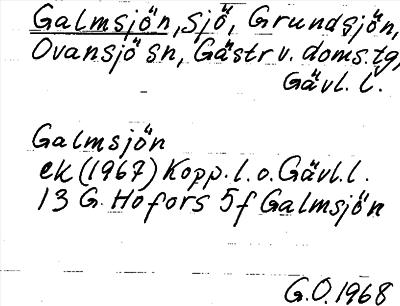 Galmsjön, sjö, Grundsjön,
Ovansjö sn, Gästr v. doms.tg,
Gävl. l.
Galmsjön
ek (1967) Kopp. l. o. Gävl. l.
13 G. Hofors 5f Galmsjön
G.O. 1968